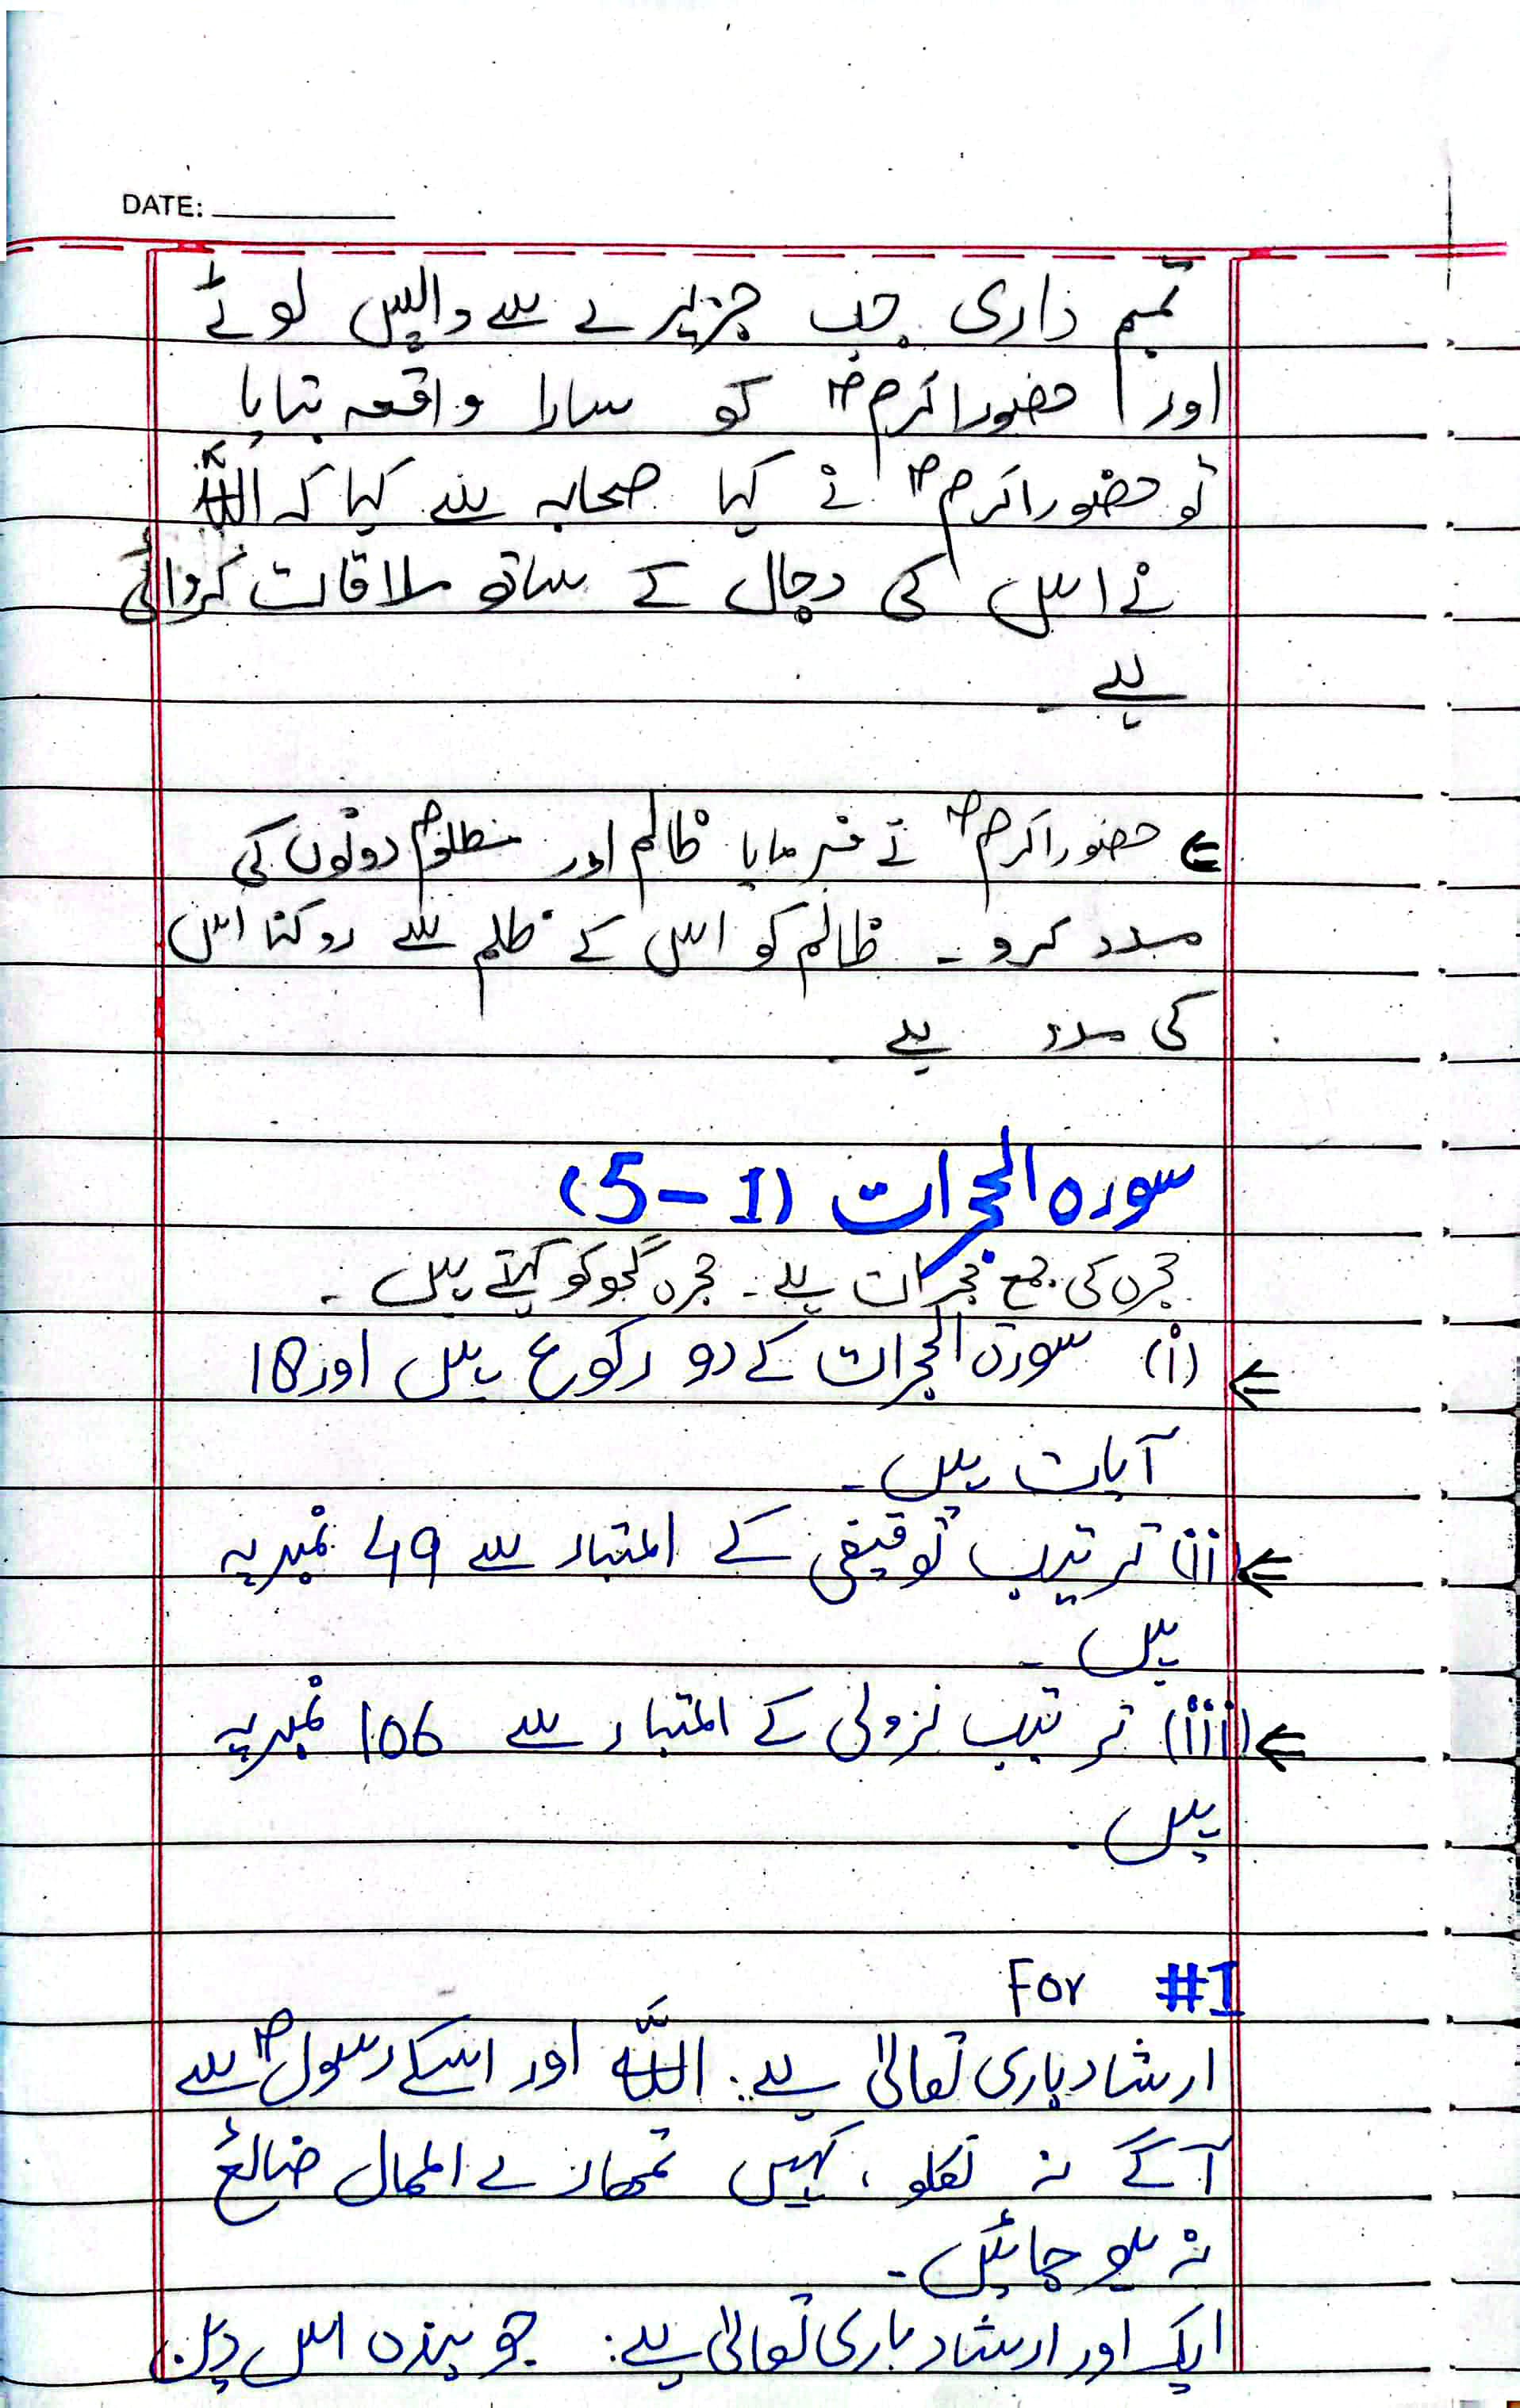 DATE:
تمیم داری جب جزیرے سے واپس لوٹے
اور حضور اکرمؐ کو سارا واقعہ بتایا
تو حضور اکرمؐ نے کہا صحابہ سے کہا کہ اللہ
نے اس کی دجال کے ساتھ ملاقات کروائی
ہے۔
⇐ حضور اکرمؐ نے فرمایا ظالم اور مظلوم دونوں کی
مدد کرو۔ ظالم کو اس کے ظلم سے روکنا اس
کی مدد ہے۔
سورہ الحجرات (1-5)
حجرہ کی جمع حجرات ہے۔ حجرہ کو کہتے ہیں۔
⇐ (i) سورۃ الحجرات کے دو رکوع ہیں اور 18
آیات ہیں۔
⇐ (ii) ترتیب توقیفی کے اعتبار سے 49 نمبر پہ
ہیں۔
⇐ (iii) ترتیب نزولی کے اعتبار سے 106 نمبر پہ
ہیں۔
For #1
ارشاد باری تعالیٰ ہے: اللہ اور اسکے رسولؐ سے
آگے نہ نکلو، کہیں تمھارے اعمال ضائع
نہ ہو جائیں۔
ایک اور ارشاد باری تعالیٰ ہے: جو بندہ اس دین